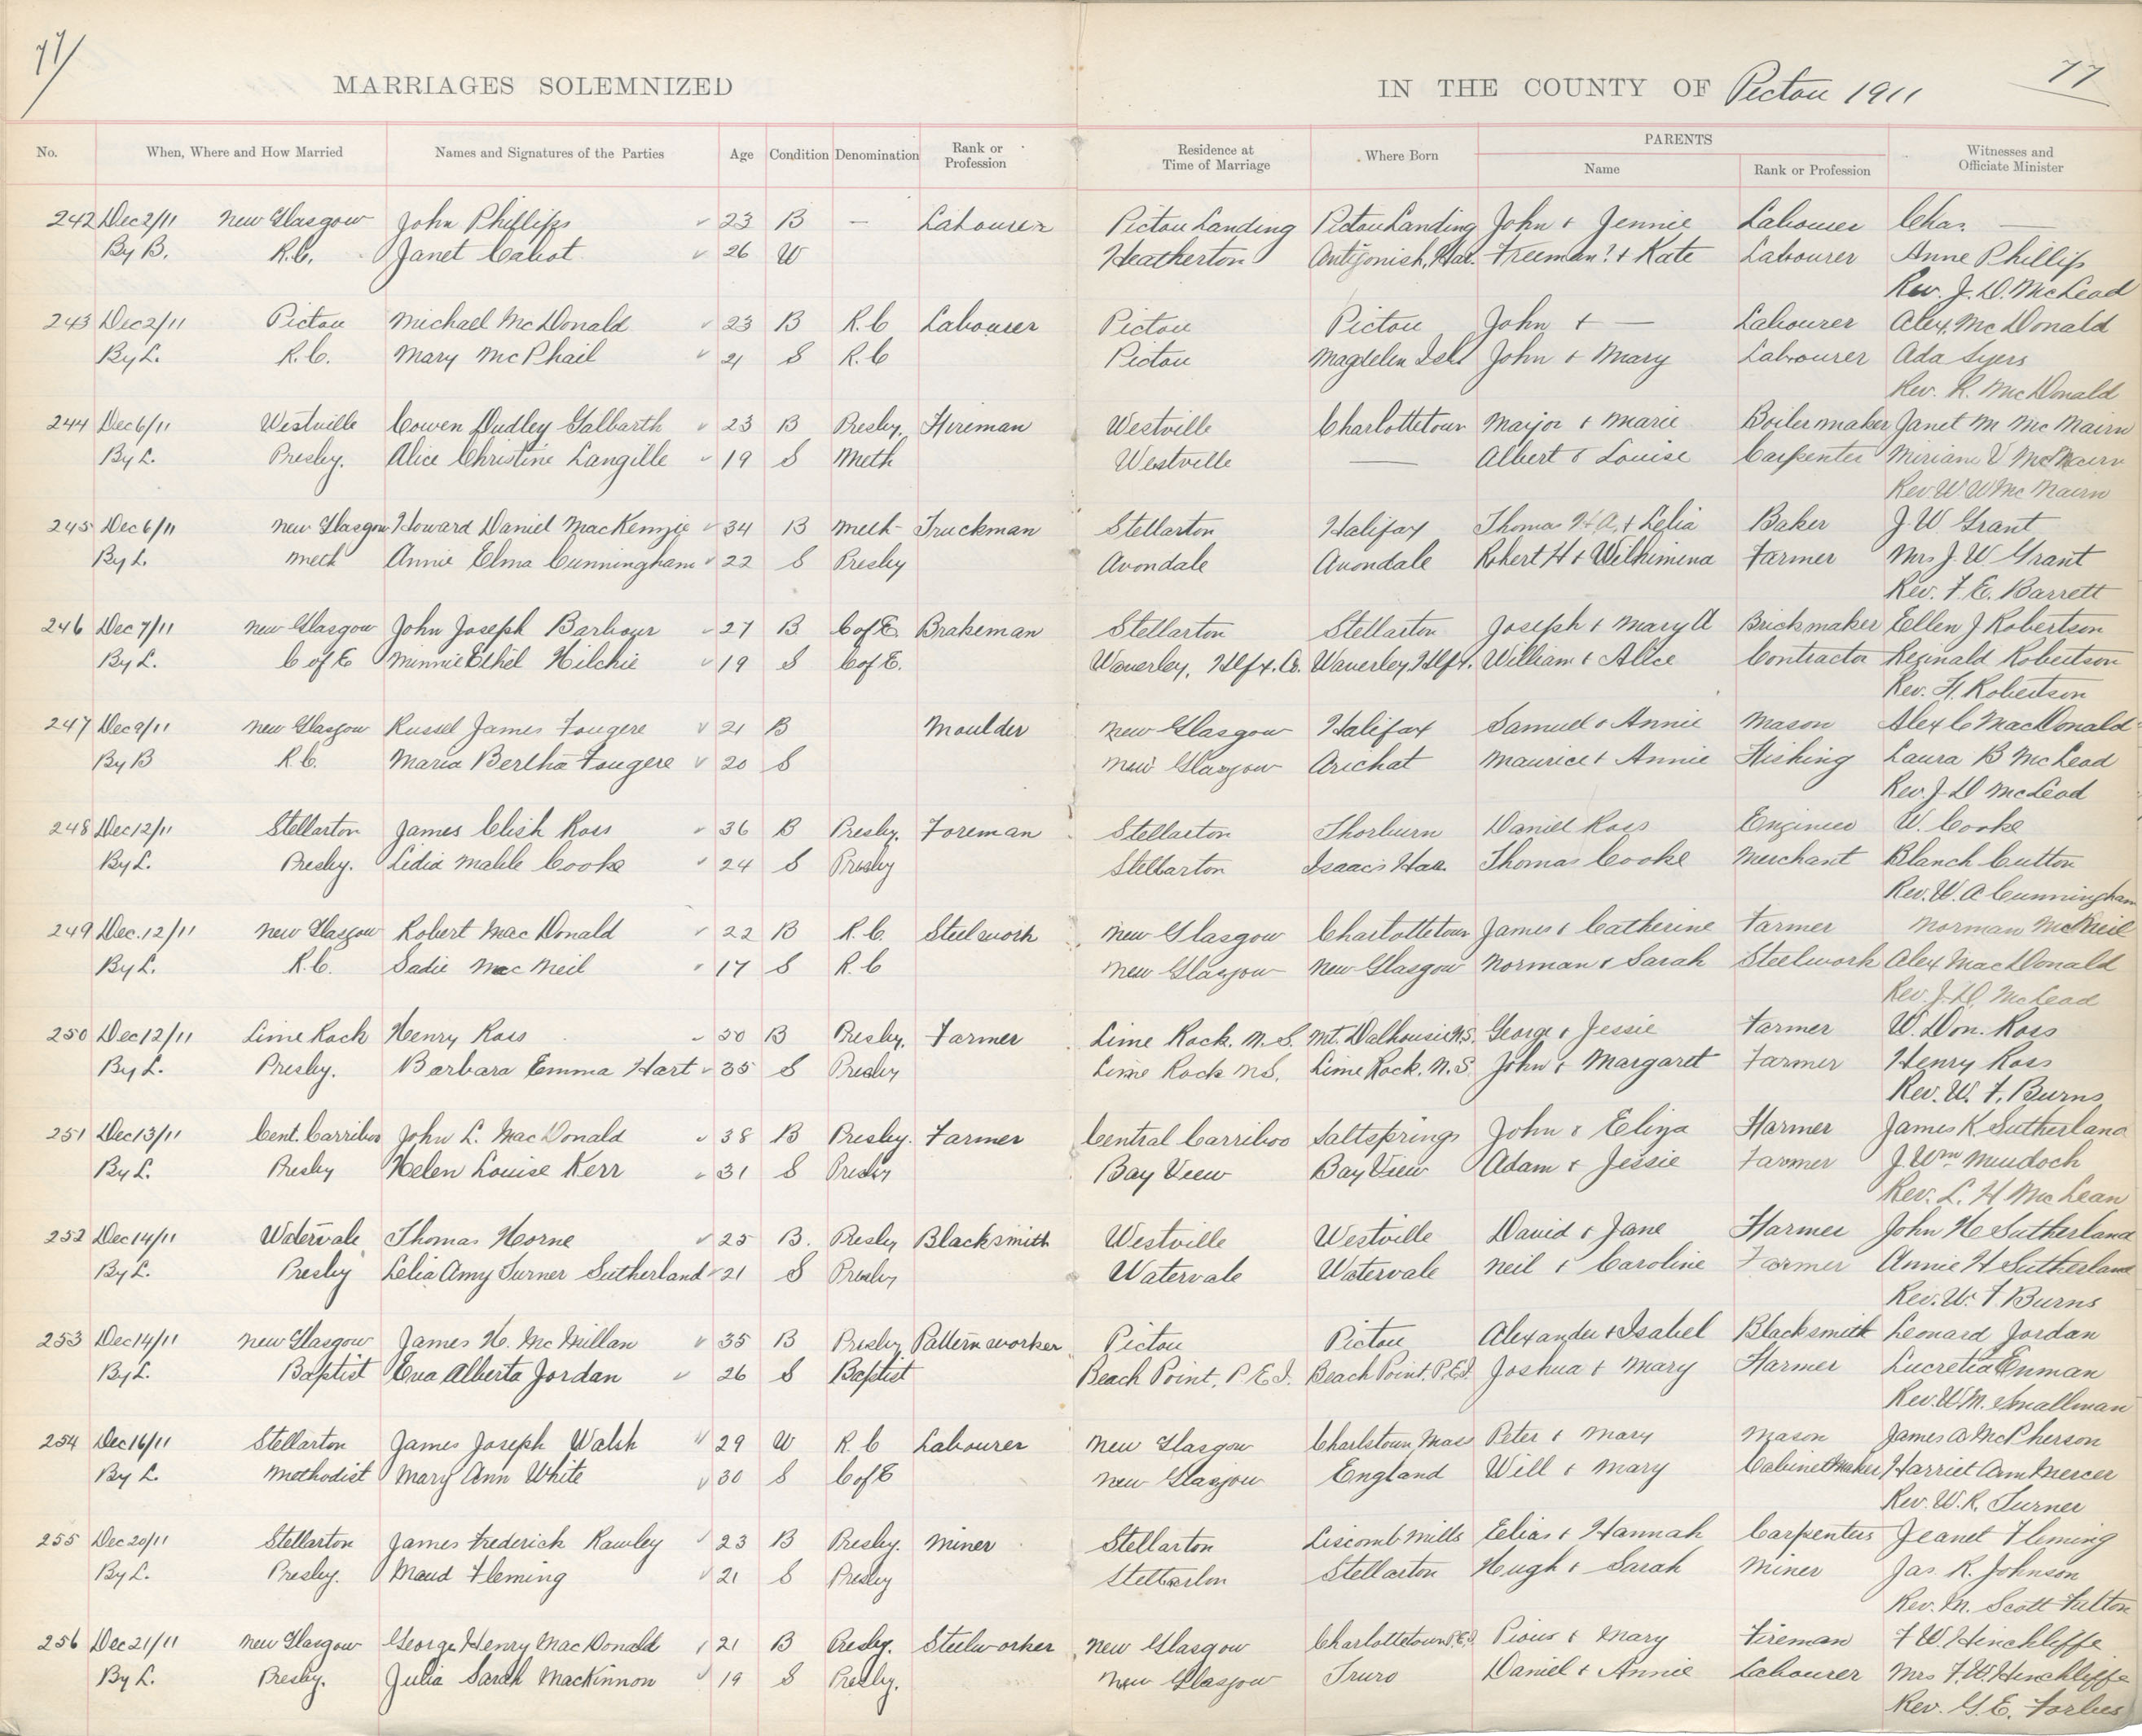 77
MARRIAGES SOLEMNIZED IN THE COUNTY OF Pictou 1911 77
No. When, Where and How Married Names and Signatures of the Parties Age Condition Denomination Rank or Profession Residence at Time of Marriage Where Born PARENTS Name Rank or Profession Witnesses and Officiate Minister
242 Dec 2/11 New Glasgow John Phillips 23 B — Labourer Pictou Landing Pictou Landing John + Jennie Labourer Chas. —
By B. R.C. Janet Cabot 26 W Heatherton Antigonish, Har. Freeman? + Kate Labourer Anne Phillips
Rev. J. D. McLeod
243 Dec 2/11 Pictou Michael McDonald 23 B R.C Labourer Pictou Pictou John + — Labourer Alex. McDonald
By L. R.C. Mary McPhail 21 S R.C Pictou Magdelen Isld John + Mary Labourer Ada Syers
Rev. R. McDonald
244 Dec 6/11 Westville Cowen Dudley Galbarth 23 B Presby. Fireman Westville Charlottetown Marjor + Marie Boilermaker Janet M McNairn
By L. Presby. Alice Christine Langille 19 S Meth Westville — Albert & Louise Carpenter Miriam V McNairn
Rev. W W McNairn
245 Dec 6/11 New Glasgow Howard Daniel MacKenzie 34 B Meth Truckman Stellarton Halifax Thomas H A. + Lelia Baker J. W Grant
By L. Meth Annie Elma Cunningham 22 S Presby Avondale Avondale Robert H + Wilhimena Farmer Mrs J. W. Grant
Rev. F. E. Barrett
246 Dec 7/11 New Glasgow John Joseph Barbour 27 B C of E Brakeman Stellarton Stellarton Joseph + Mary A Brickmaker Ellen J Robertson
By L. C of E Minnie Ethel Hilchie 19 S C of E. Waverley, Hlfx. Co. Waverley, Hlfx. William + Alice Contractor Reginald Robertson
Rev. H. Robertson
247 Dec 9/11 New Glasgow Russel James Fougere 21 B Moulder New Glasgow Halifax Samuel & Annie Mason Alex C MacDonald
By B R.C. Maria Bertha Fougere 20 S New Glasgow Arichat Maurice + Annie Fishing Laura B McLeod
Rev. J. D McLeod
248 Dec 12/11 Stellarton James Clish Ross 36 B Presby. Foreman Stellarton Thorburn Daniel Ross Engineer W. Cooke
By L. Presby. Lidia Mable Cooke 24 S Presby Stellarton Isaac's Har. Thomas Cooke Merchant Blanch Cutton
Rev. W. A Cunningham
249 Dec. 12/11 New Glasgow Robert MacDonald 22 B R.C. Steelwork New Glasgow Charlottetown James + Catherine Farmer Norman McNeil
By L. R.C. Sadie MacNeil 17 S R.C New Glasgow New Glasgow Norman + Sarah Steelwork Alex MacDonald
Rev. J. D. McLeod
250 Dec 12/11 Lime Rock Henry Ross 50 B Presby. Farmer Lime Rock. N.S. Mt. Dalhousie N.S. George + Jessie Farmer W. Don. Ross
By L. Presby. Barbara Emma Hart 35 S Presby Lime Rock N.S. Lime Rock. N.S. John + Margaret Farmer Henry Ross
Rev. W. F. Burns
251 Dec 13/11 Cent. Carriboo John L. MacDonald 38 B Presby. Farmer Central Carriboo Saltsprings John & Eliza Farmer James K Sutherland
By L. Presby Helen Louise Kerr 31 S Presby Bay View Bay View Adam + Jessie Farmer J. Wm Murdoch
Rev. L. H McLean
252 Dec 14/11 Watervale Thomas Horne 25 B. Presby Blacksmith Westville Westville David + Jane Farmer John H Sutherland
By L. Presby Lelia Amy Turner Sutherland 21 S Presby Watervale Watervale Neil + Caroline Farmer Annie H Sutherland
Rev. W. F. Burns
253 Dec 14/11 New Glasgow James H. McMillan 35 B Presby Pattern worker Pictou Pictou Alexander + Isabel Blacksmith Leonard Jordan
By L. Baptist Eva Alberta Jordan 26 S Baptist Beach Point, P.E.I. Beach Point, P.E.I. Joshua + Mary Farmer Lucretia Enman
Rev. W. M. Smallman
254 Dec 16/11 Stellarton James Joseph Walsh 29 W R.C Labourer New Glasgow Charlstown, Mas Peter + Mary Mason James A McPherson
By L. Methodist Mary Ann White 30 S C of E New Glasgow England Will + Mary Cabinetmaker Harriet Ann Mercer
Rev. W. R. Turner
255 Dec 20/11 Stellarton James Frederick Rawley 23 B Presby. Miner Stellarton Liscomb Mills Elias + Hannah Carpenter Jeanet Fleming
By L. Presby. Maud Fleming 21 S Presby Stellarton Stellarton Hugh + Sarah Miner Jas. R. Johnson
Rev. M. Scott Fulton
256 Dec 21/11 New Glasgow George Henry MacDonald 21 B Presby. Steelworker New Glasgow Charlottetown P.E.I. Pious + Mary Fireman F W. Hinchliffe
By L. Presby. Julia Sarah MacKinnon 19 S Presby. New Glasgow Truro Daniel + Annie Labourer Mrs F. W. Hinchliffe
Rev. G. E. Forbes